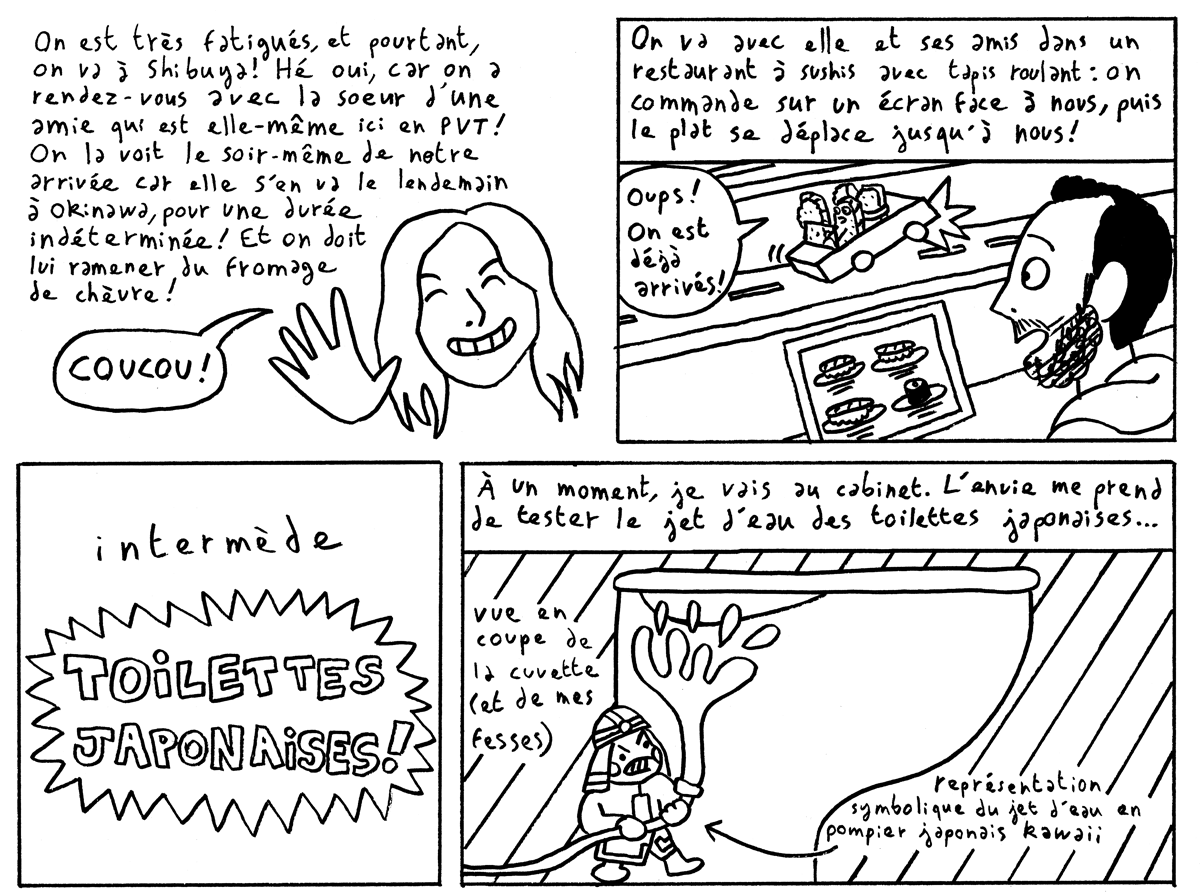 On est très fatigués, et pourtant,
on va à Shibuya! Hé oui, car on a
rendez-vous avec la soeur d'une
amie qui est elle-même ici en PVT!
On la voit le soir-même de notre
arrivée car elle s'en va le lendemain
à Okinawa, pour une durée
indéterminée! Et on doit
lui ramener du fromage
de chèvre!
COUCOU!
On va avec elle et ses amis dans un
restaurant à sushis avec tapis roulant: on
commande sur un écran face à nous, puis
le plat se déplace jusqu'à nous!
Oups!
On est
déjà
arrivés!
intermède
TOILETTES
JAPONAISES!
À un moment, je vais au cabinet. L'envie me prend
de tester le jet d'eau des toilettes japonaises...
vue en
coupe de
la cuvette
(et de mes
fesses)
représentation
symbolique du jet d'eau en
pompier japonais kawaii